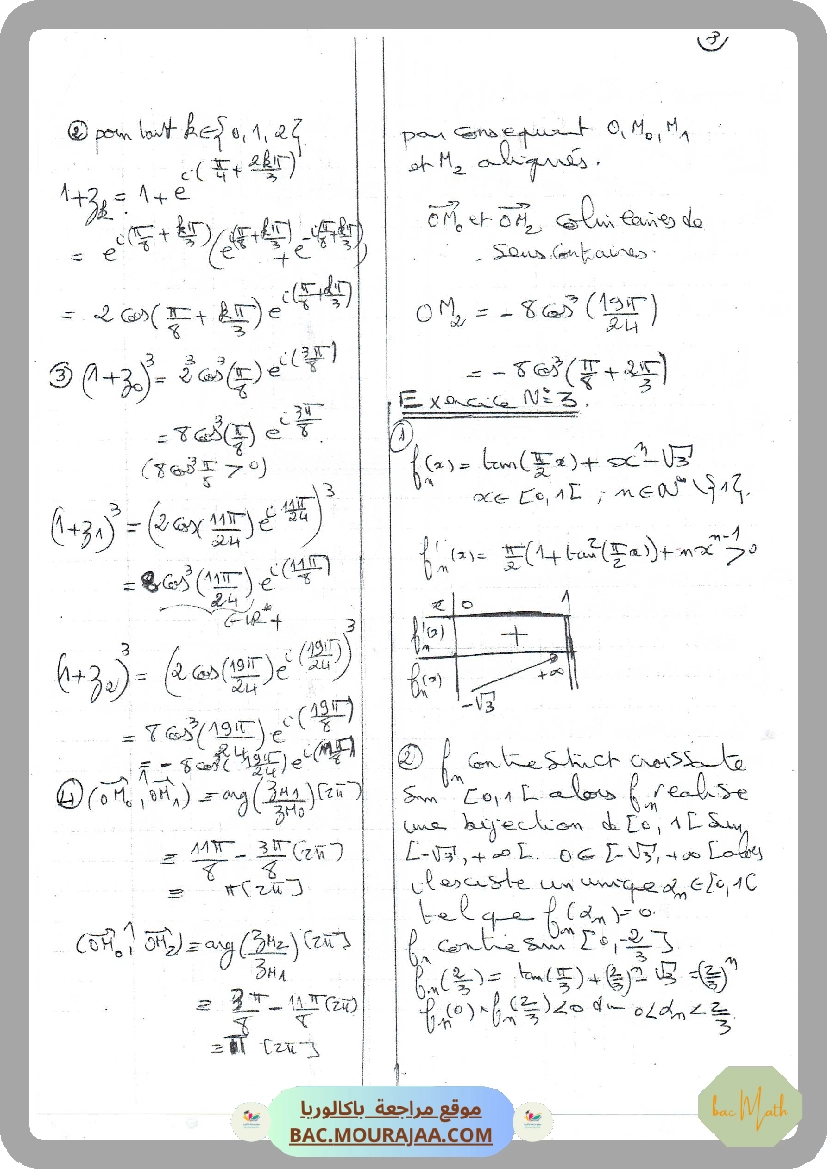 3
② pour tout k∈{0,1,2}
1+z_k = 1+e^{i(π/4 + 2kπ/3)}
= e^{i(π/8 + kπ/3)} (e^{i(π/8+kπ/3)} + e^{-i(π/8+kπ/3)})
= 2cos(π/8 + kπ/3) e^{i(π/8+kπ/3)}
③ (1+z₀)³ = 2³cos³(π/8) e^{i(3π/8)}
= 8cos³(π/8) e^{i3π/8}
(8cos³π/5 > 0)
(1+z₁)³ = (2cos(11π/24) e^{i11π/24})³
= 8cos³(11π/24) e^{i(11π/8)}
∈ℝ*₊
(1+z₂)³ = (2cos(19π/24) e^{i(19π/24)})³
= 8cos³(19π/24) e^{i(19π/8)}
= -8cos³(19π/24) e^{i(11π/8)}
④ (OM₀, OM₁) ≡ arg(z_{M1}/z_{M0}) [2π]
≡ 11π/8 - 3π/8 [2π]
≡ π[2π]
(OM₀, OM₂) ≡ arg(z_{M2}/z_{M1}) [2π]
≡ 3π/8 - 11π/8 [2π]
≡ π [2π]
par consequent O, M₀, M₁
et M₂ alignés.
OM₀ et OM₂ colineaires de
sens contaires.
OM₂ = -8cos³(19π/24)
= -8cos³(π/8 + 2π/3)
Exercice N°3.
①
f_n(x) = tan(π/2 x) + xⁿ - √3
x∈[0,1[ ; n∈ℕ* \{1}.
f'_n(x) = π/2 (1+tan²(π/2 x)) + nx^{n-1} > 0
x 0 1
f'_n(x) +
f_n(x) -√3 +∞
② f_n contie strict croissante
sur [0,1[ alors f_n réalise
une bijection de [0,1[ sur
[-√3, +∞[. 0∈[-√3, +∞[ alors
il existe un unique α_n∈[0,1[
tel que f_n(α_n)=0.
f_n contie sur [0, 2/3]
f_n(2/3) = tan(π/3) + (2/3)ⁿ - √3 = (2/3)ⁿ
f_n(0) × f_n(2/3) < 0 0<α_n<2/3.
موقع مراجعة باكالوريا
BAC.MOURAJAA.COM
bac Math